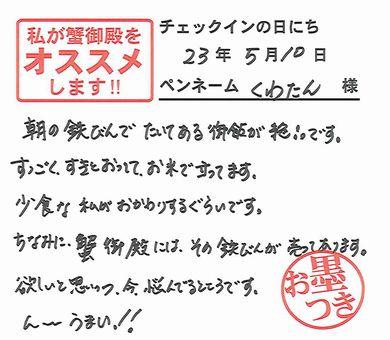 私が蟹御殿を
オススメ
します!!
チェックインの日にち
23年5月10日
ペンネーム くわたん 様
朝の鉄びんでたいてある御飯が絶品です。
すっごく、すきとおってて、お米で立ってます。
少食な私がおかわりするぐらいです。
ちなみに、蟹御殿には、その鉄びんが売ってあります。
欲しいと思いつつ、今、悩んでるところです。
ん〜〜うまい!!
お墨つき